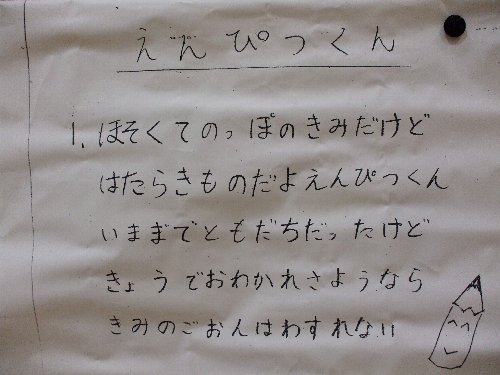 えんぴつくん
1. ほそくてのっぽのきみだけど
はたらきものだよえんぴつくん
いままでともだちだったけど
きょうでおわかれさようなら
きみのごおんはわすれない